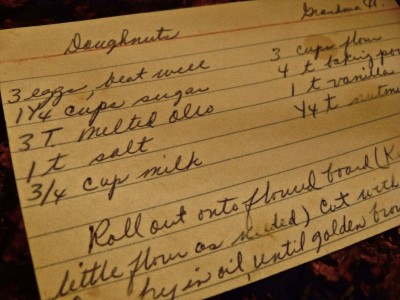 Doughnuts Grandma H.
3 eggs, beat well 3 cups flour
1 1/4 cups sugar 4 t baking pow
3 T melted oleo 1 t vanilla
1 t salt 1/4 t nutme
3/4 cup milk
Roll out onto floured board (K
little flour as needed) Cut with
fry in oil, until golden brow